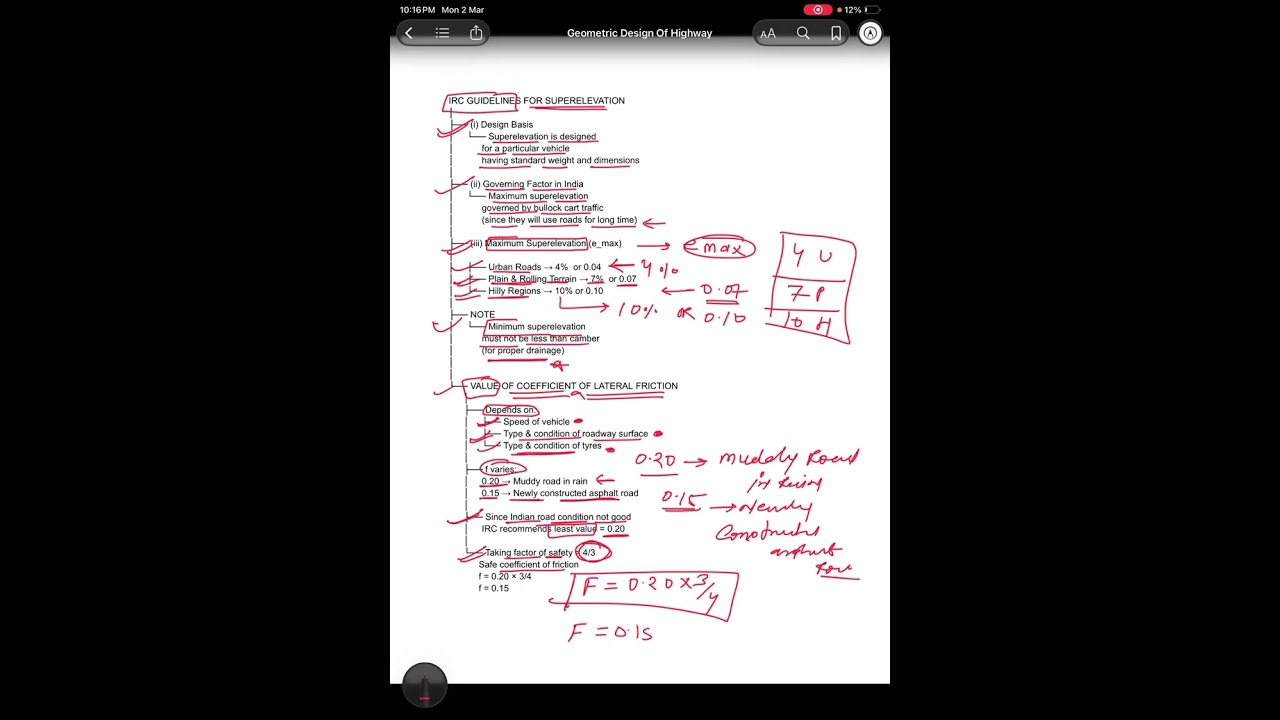 10:16 PM Mon 2 Mar
12%
Geometric Design Of Highway
AA
IRC GUIDELINES FOR SUPERELEVATION
(i) Design Basis
Superelevation is designed
for a particular vehicle
having standard weight and dimensions
(ii) Governing Factor in India
Maximum superelevation
governed by bullock cart traffic
(since they will use roads for long time)
(iii) Maximum Superelevation (e_max) → e max
Urban Roads → 4% or 0.04 ← 4%
Plain & Rolling Terrain → 7% or 0.07
Hilly Regions → 10% or 0.10 ← 0.07
→ 10% or 0.10
4 U
7 P
10 H
NOTE
Minimum superelevation
must not be less than camber
(for proper drainage)
VALUE OF COEFFICIENT OF LATERAL FRICTION
Depends on:
Speed of vehicle
Type & condition of roadway surface
Type & condition of tyres
f varies:
0.20 → Muddy road in rain ←
0.15 → Newly constructed asphalt road
0.20 → Muddy Road
in
0.15 → Newly
Constructed
asphalt
Since Indian road condition not good
IRC recommends least value = 0.20
Taking factor of safety = 4/3
Safe coefficient of friction
f = 0.20 × 3/4
f = 0.15
F = 0.20 × 3/4
F = 0.15